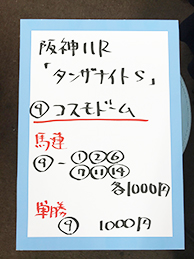 阪神11R
「タンザナイトS」
⑨コスモドーム
馬連
⑨-①②⑥
⑦⑪⑭
各1000円
単勝
⑨ 1000円